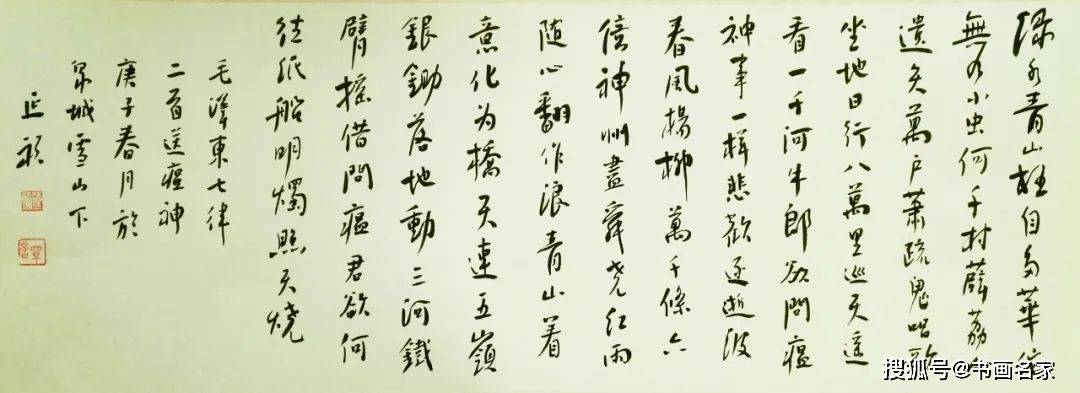 绿水青山枉自多華佗
無奈小虫何千村薜荔人
遺矢萬户蕭疏鬼唱歌
坐地日行八萬里巡天遥
看一千河牛郎欲問瘟
神事一样悲歡逐逝波
春風楊柳萬千條六
億神州盡舜尧红雨
随心翻作浪青山着
意化为橋天連五嶺
銀鋤落地動三河鐵
臂摇借問瘟君欲何
往纸船明燭照天燒
毛澤東七律
二首送瘟神
庚子春月於
泉城雪山下
搜狐号@书画名家